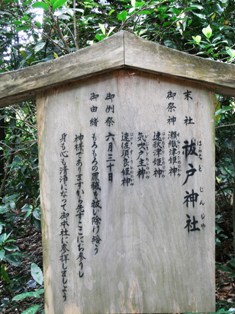 末社
祓戸神社
はらへど じんじゃ
御祭神 瀬織津姫神
速秋津姫神
気吹戸主神
速佐須良姫神
御例祭 六月三十日
御由緒 もろもろの罪穢を祓い除け給う
神様でありますから先ずここにお参りし
身も心も清浄になって御本社に参拝しましょう